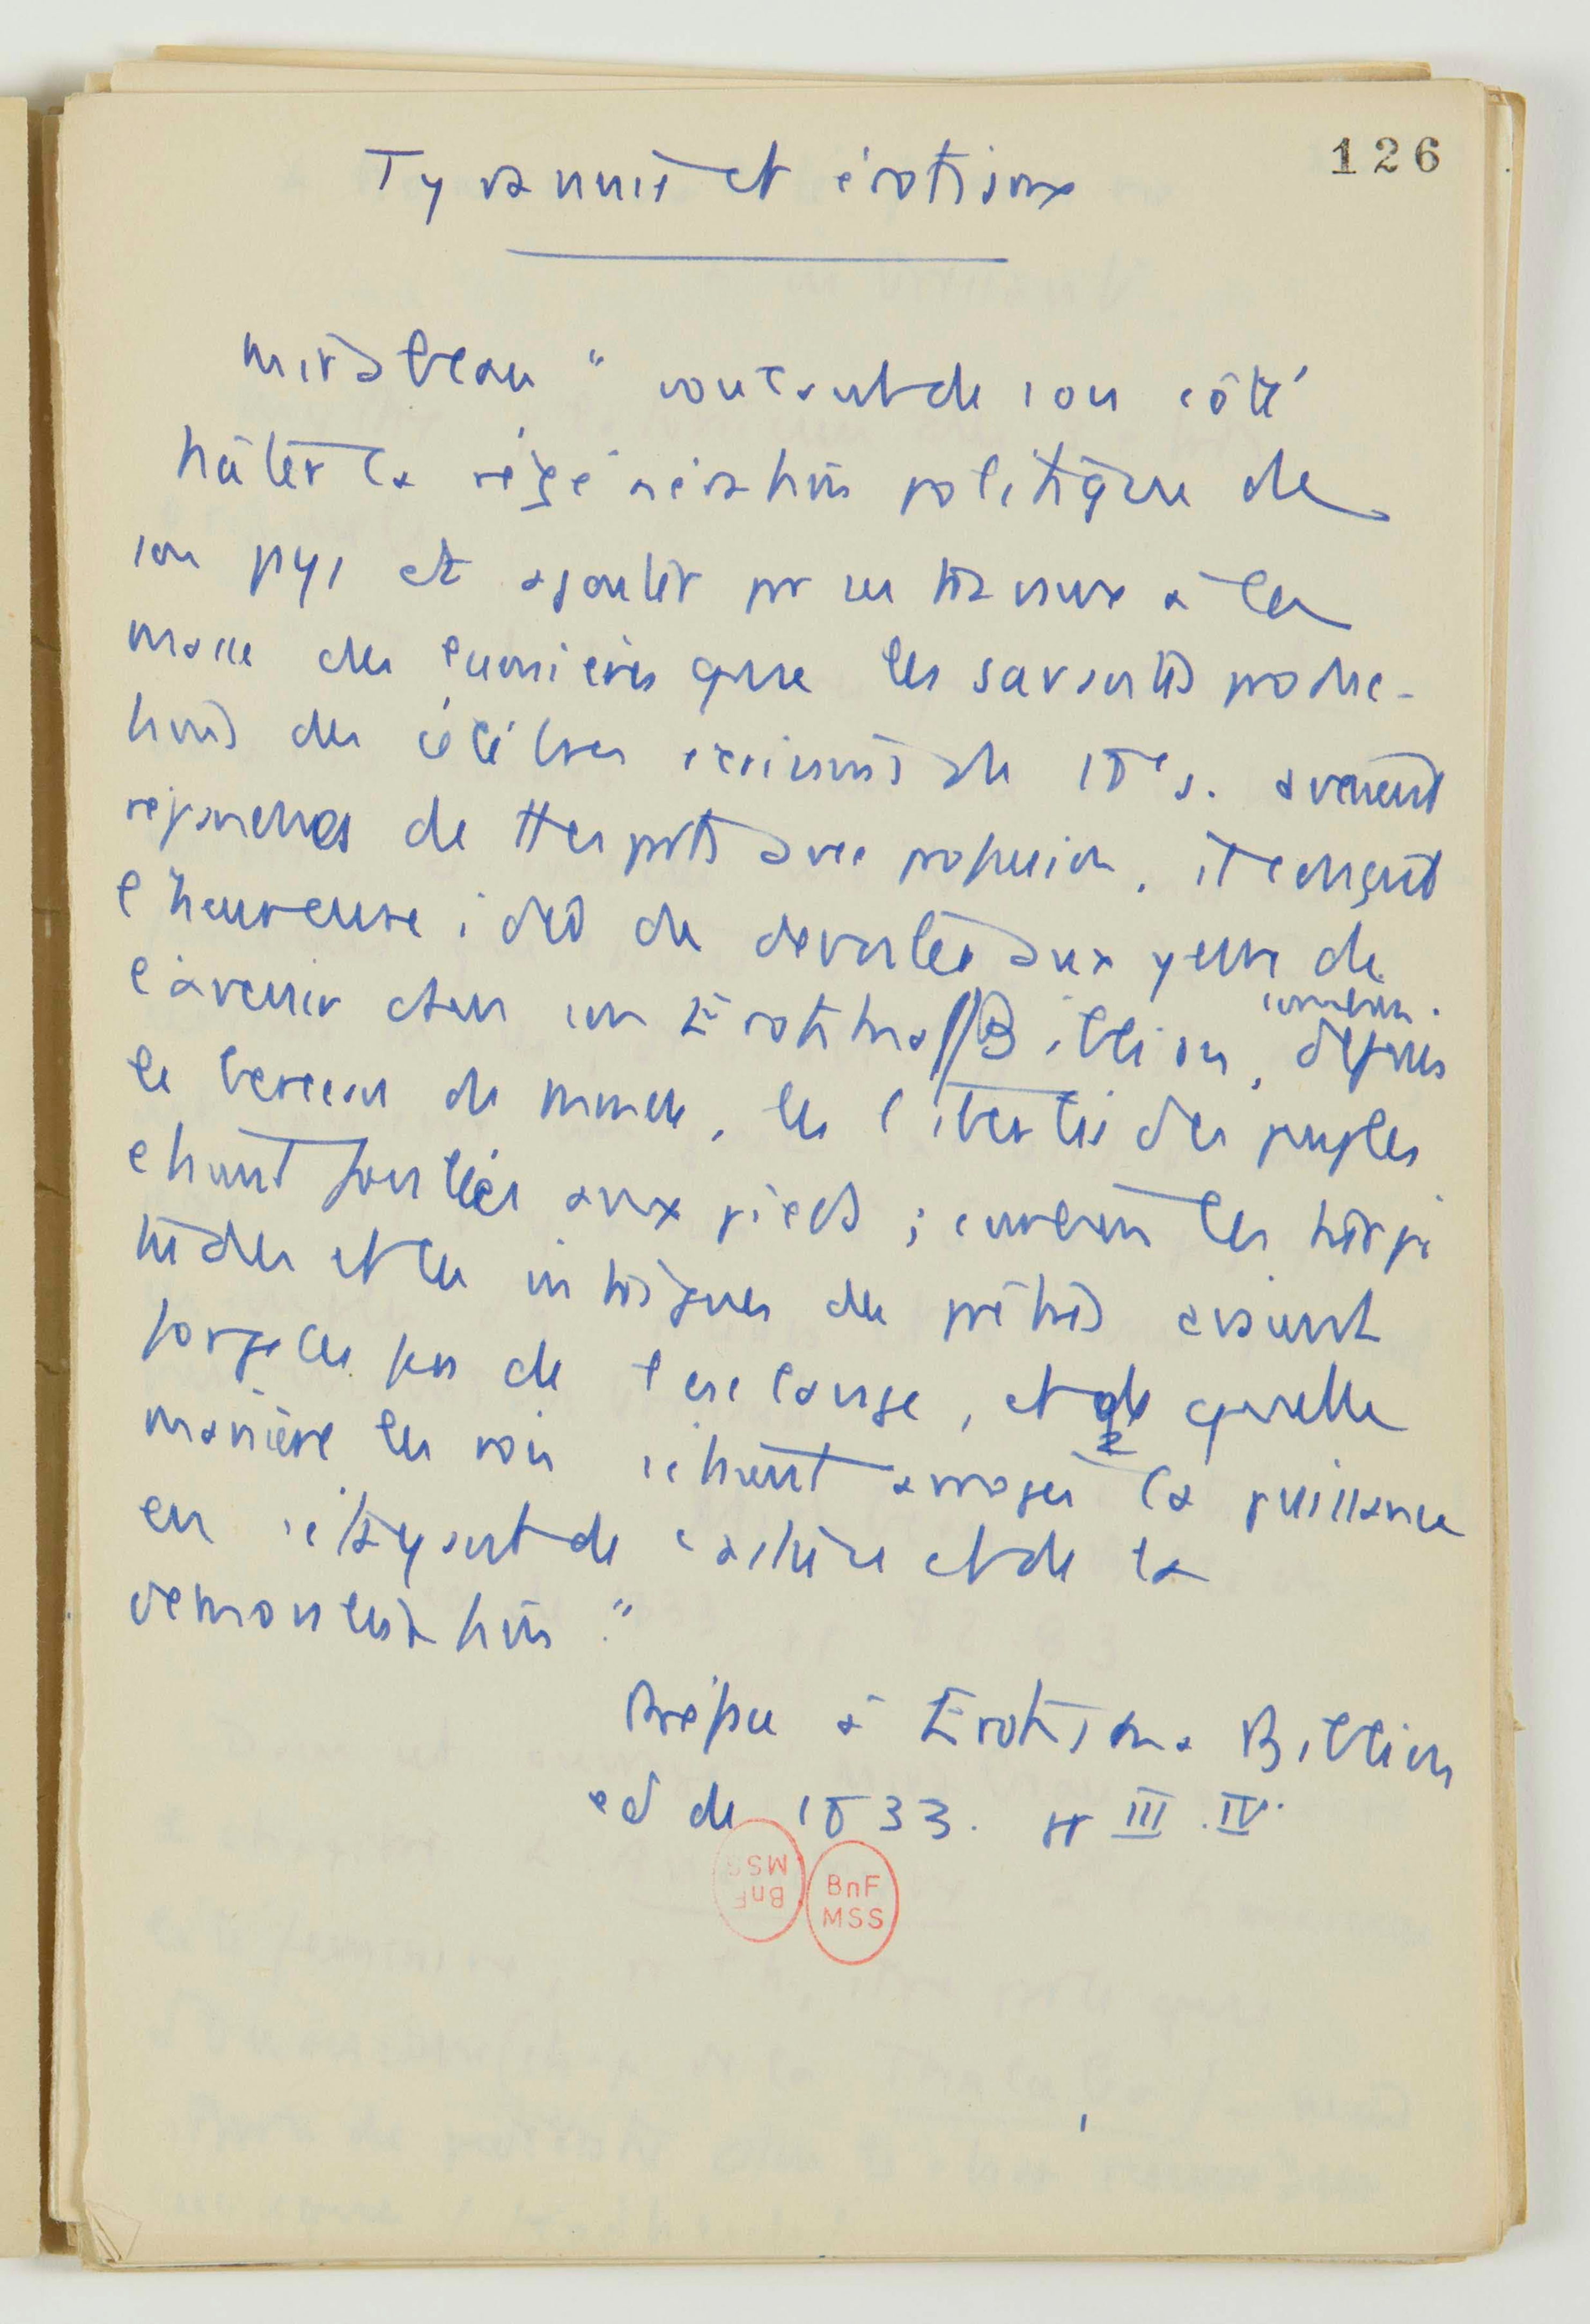 126
Tyrannie et érotisme
Mirabeau " voulant de son côté
hâter la régénération politique de
son pays et ajouter par ses travaux à la
masse des lumières que les savantes produc-
tions des célèbres écrivains du 18e s. avaient
répandues de ttes parts avec profusion, il conçut
l'heureuse idée de dévoiler aux yeux de
l'avenir dans son Erotika Biblion,
comment
depuis
le berceau du monde, les libertés des peuples
étaient foulées aux pieds ; comment les turpi
tudes et les intrigues des prêtres avaient
forgé les fers de l'esclavage, et de quelle
manière les rois s'étaient arrogé la puissance
en s'étayant de l'astuce et de la
démonstration "
Préface à Erotika Biblion
ed de 1833. pp III . IV.
BnF
MSS
BnF
MSS